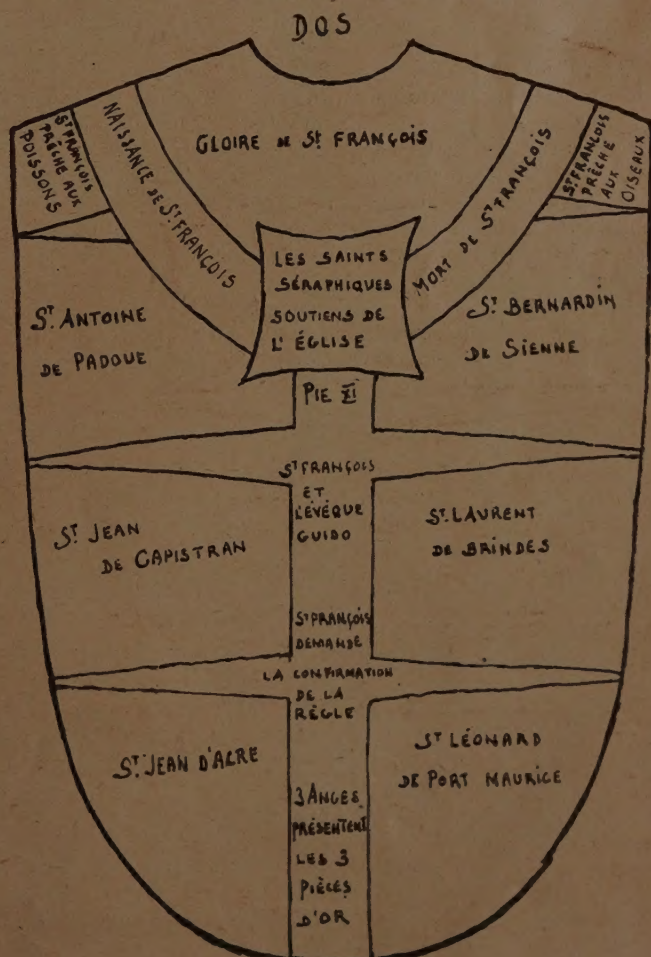 DOS
ST FRANÇOIS
PRÊCHE AUX
POISSONS
NAISSANCE DE ST FRANÇOIS
GLOIRE DE ST FRANÇOIS
MORT DE ST FRANÇOIS
ST FRANÇOIS
PRÊCHE
AUX
OISEAUX
LES SAINTS
SÉRAPHIQUES
SOUTIENS DE
L'ÉGLISE
ST ANTOINE
DE PADOUE
ST BERNARDIN
DE SIENNE
PIE XI
ST FRANÇOIS
ET
L'ÉVÉQUE
GUIDO
ST JEAN
DE CAPISTRAN
ST LAURENT
DE BRINDES
ST FRANÇOIS
DEMANDE
LA CONFIRMATION
DE LA
RÈGLE
ST JEAN D'ACRE
ST LÉONARD
DE PORT MAURICE
3 ANGES
PRÉSENTENT
LES 3
PIÈCES
D'OR